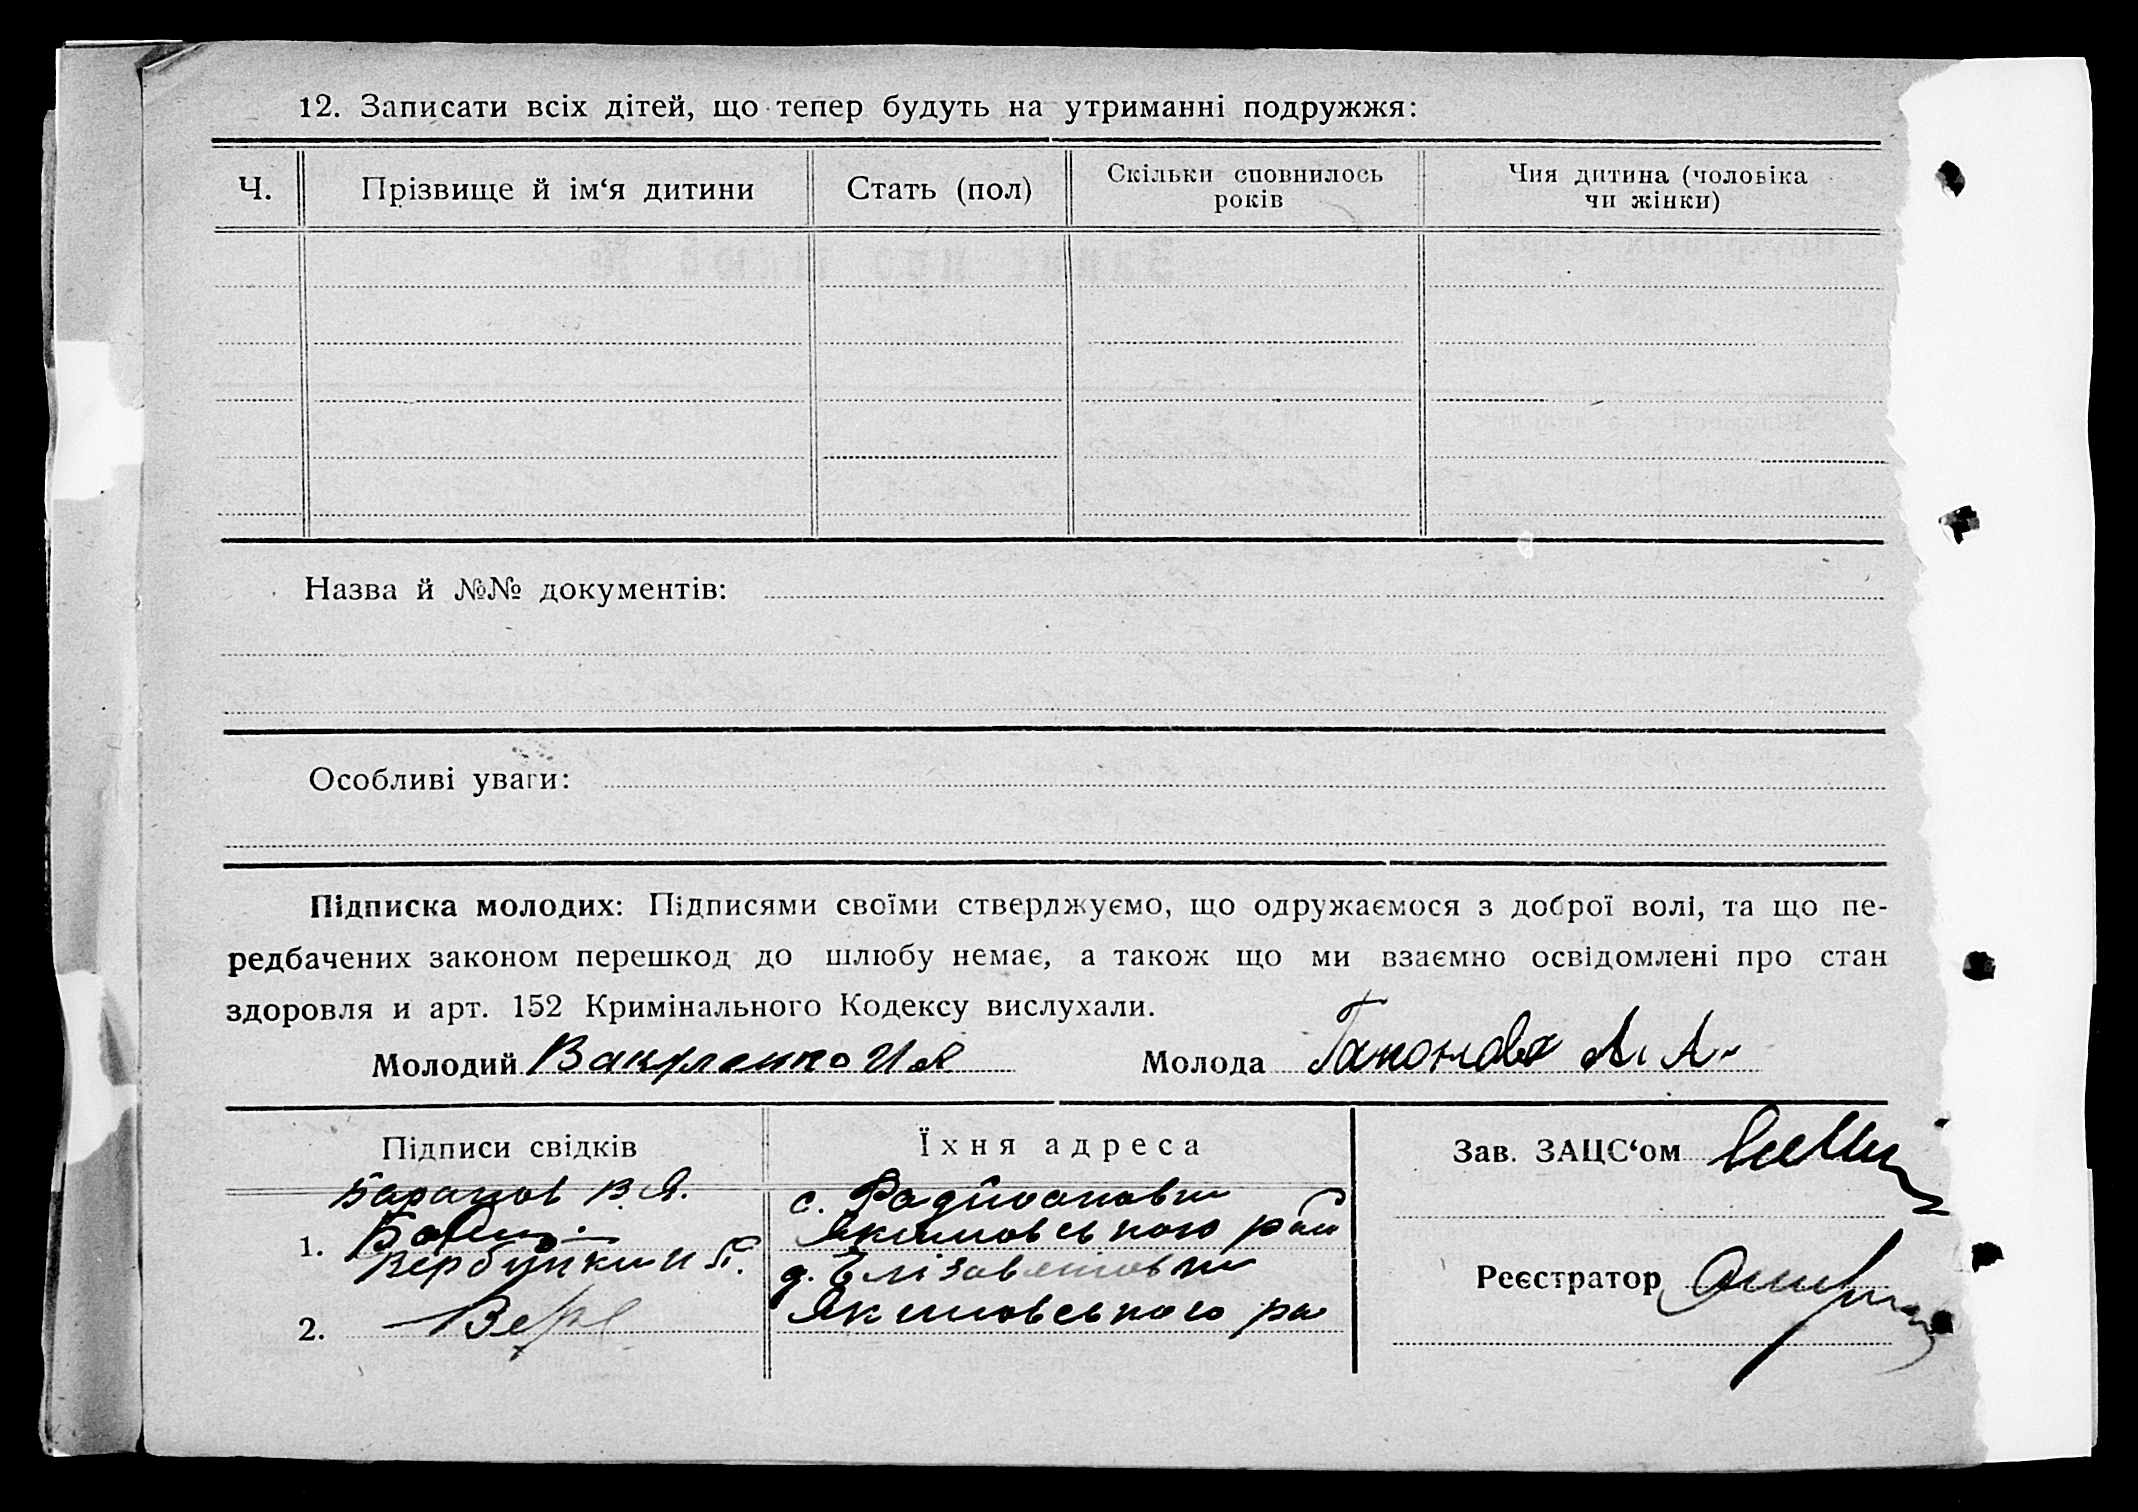 12. Записати всіх дітей, що тепер будуть на утриманні подружжя:
Ч.
Прізвище й ім‘я дитини
Стать (пол)
Скільки сповнилось
років
Чия дитина (чоловіка
чи жінки)
Назва й №№ документів:
Особливі уваги:
Підписка молодих: Підписями своїми стверджуємо, що одружаємося з доброї волі, та що пе-
редбачених законом перешкод до шлюбу немає, а також що ми взаємно освідомлені про стан
здоровля и арт. 152 Кримінального Кодексу вислухали.
Молодий Вакуленко И Я
Молода Гапонова А. А.
Підписи свідків
Їхня адреса
Зав. ЗАЦС‘ом
Баранов В. Я.
с. Радивоновки
1.
Якимовського рай
Вербицкий П.
д. Елізаветовки
2. Верб
Якимовського ра
Реєстратор